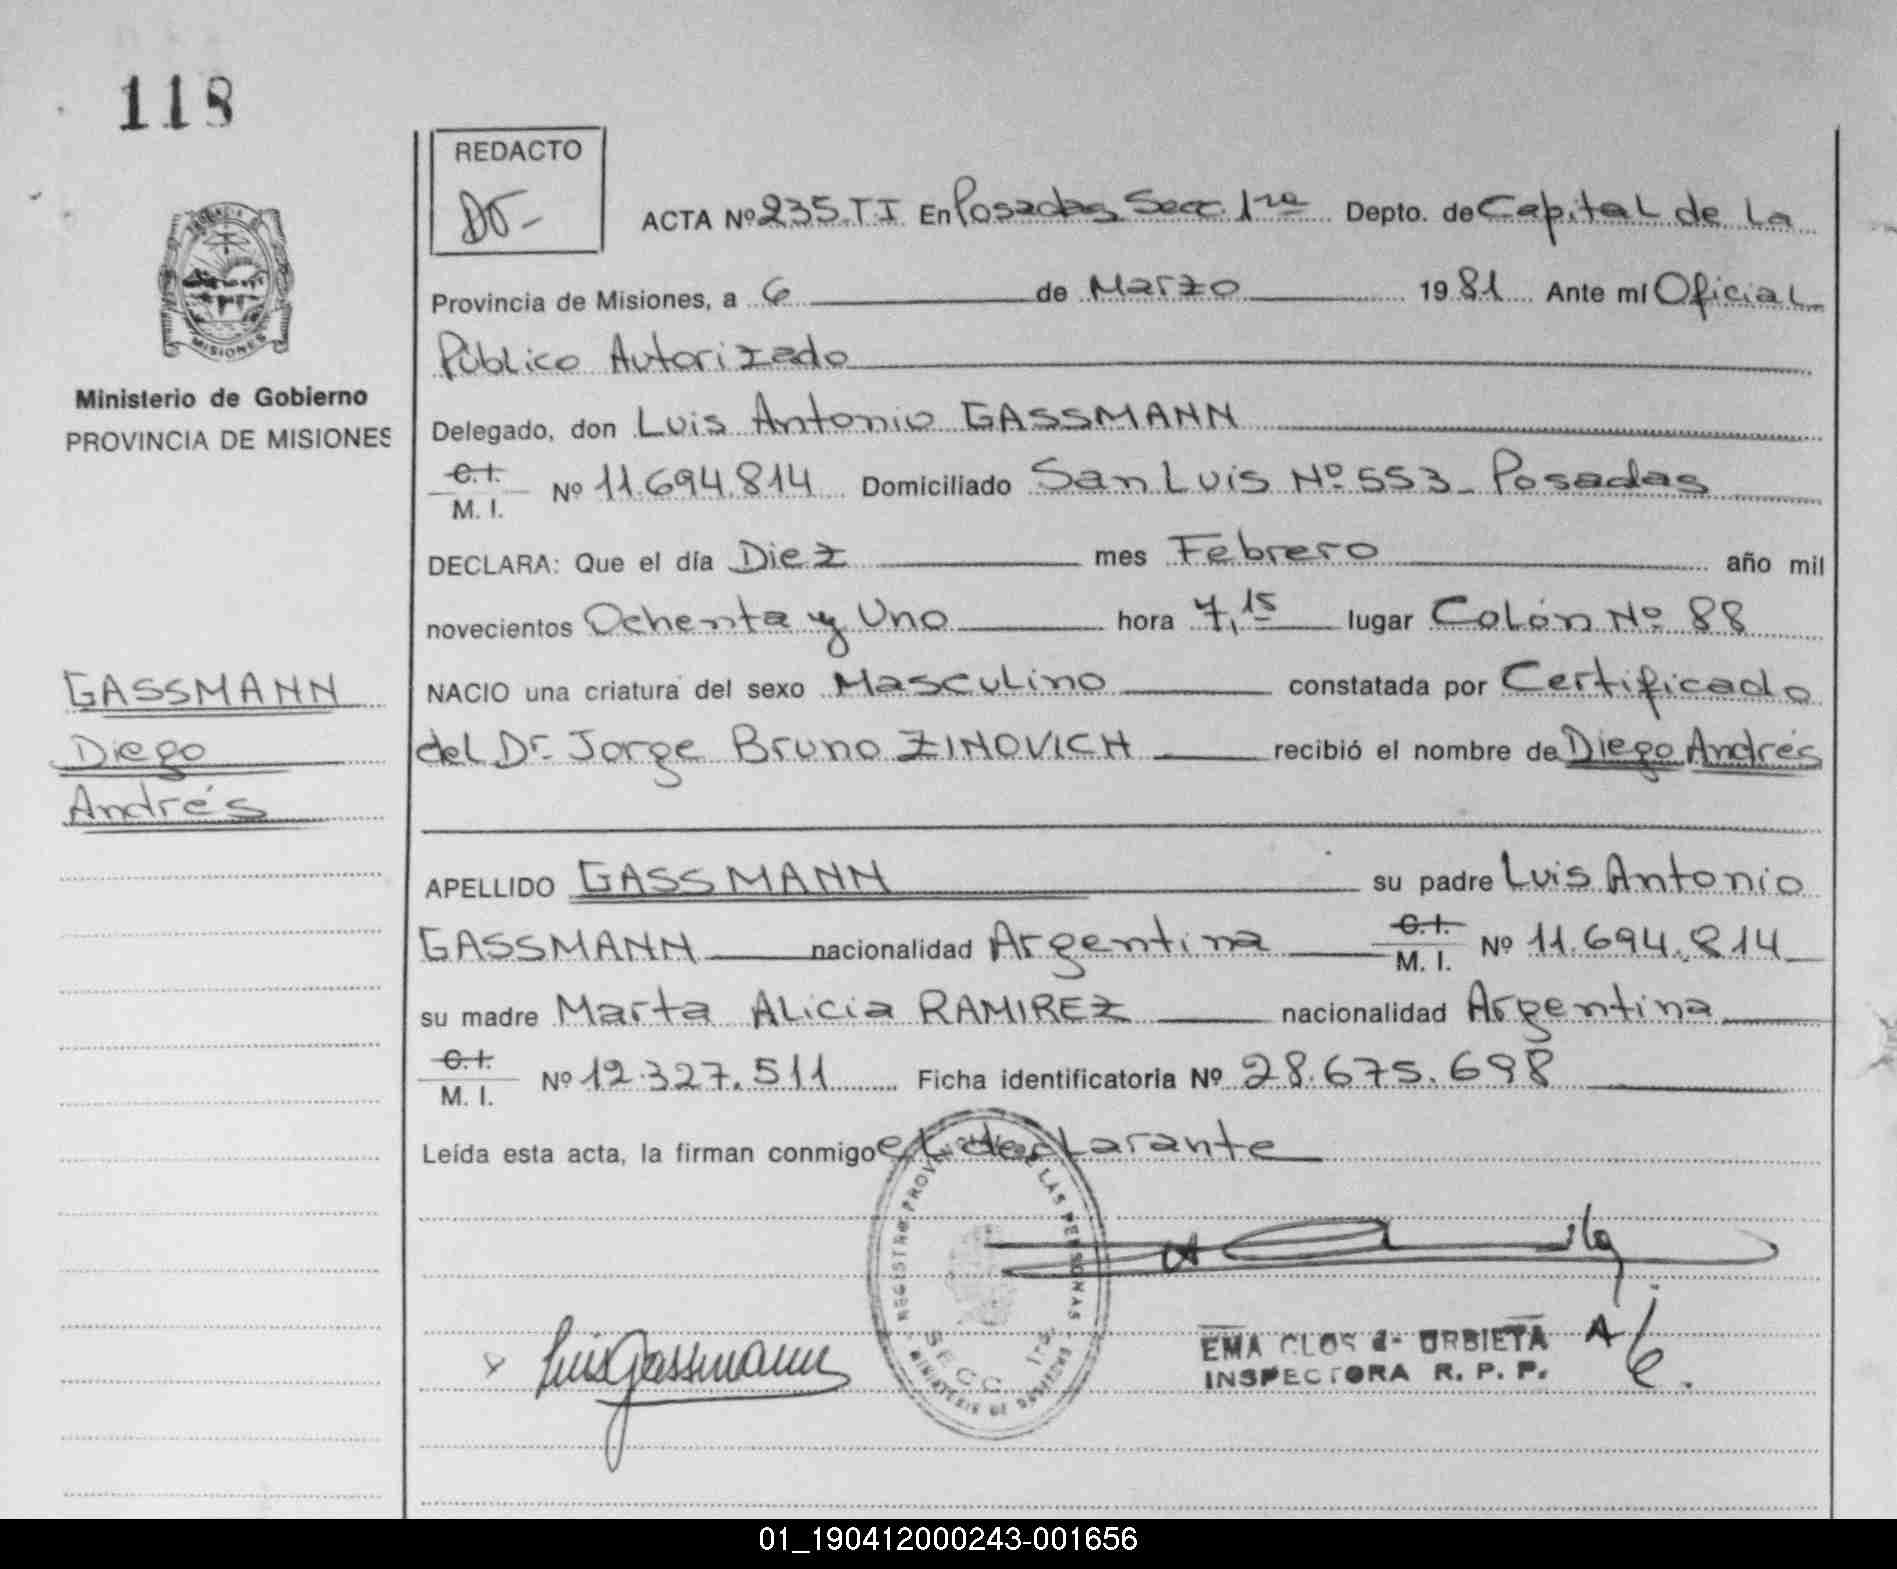 118
REDACTO
ACTA Nº 235.TI En Posadas Secc. 1ra Depto. de Capital de La
Provincia de Misiones, a 6 de Marzo 1981 Ante mí Oficial
Público Autorizado
MISIONES
Ministerio de Gobierno
PROVINCIA DE MISIONES
Delegado, don Luis Antonio GASSMANN
C.I.
M. I. Nº 11.694.814 Domiciliado San Luis Nº 553 - Posadas
DECLARA: Que el día Diez mes Febrero año mil
novecientos Ochenta y Uno hora 7,15 lugar Colón Nº 88
NACIO una criatura del sexo Masculino constatada por Certificado
del Dr. Jorge Bruno ZINOVICH recibió el nombre de Diego Andrés
GASSMANN
Diego
Andrés
APELLIDO GASSMANN su padre Luis Antonio
GASSMANN nacionalidad Argentina C.I. M. I. Nº 11.694.814
su madre Marta Alicia RAMIREZ nacionalidad Argentina
C.I.
M. I. Nº 12.327.511 Ficha identificatoria Nº 28.675.698
Leída esta acta, la firman conmigo el declarante
REGISTRO PROVINCIAL DE LAS PERSONAS
SECC. 1ra.
MINISTERIO DE GOBIERNO
Luis Gassmann
EMA CLOS de URBIETA A/C.
INSPECTORA R. P. P.
01_190412000243-001656